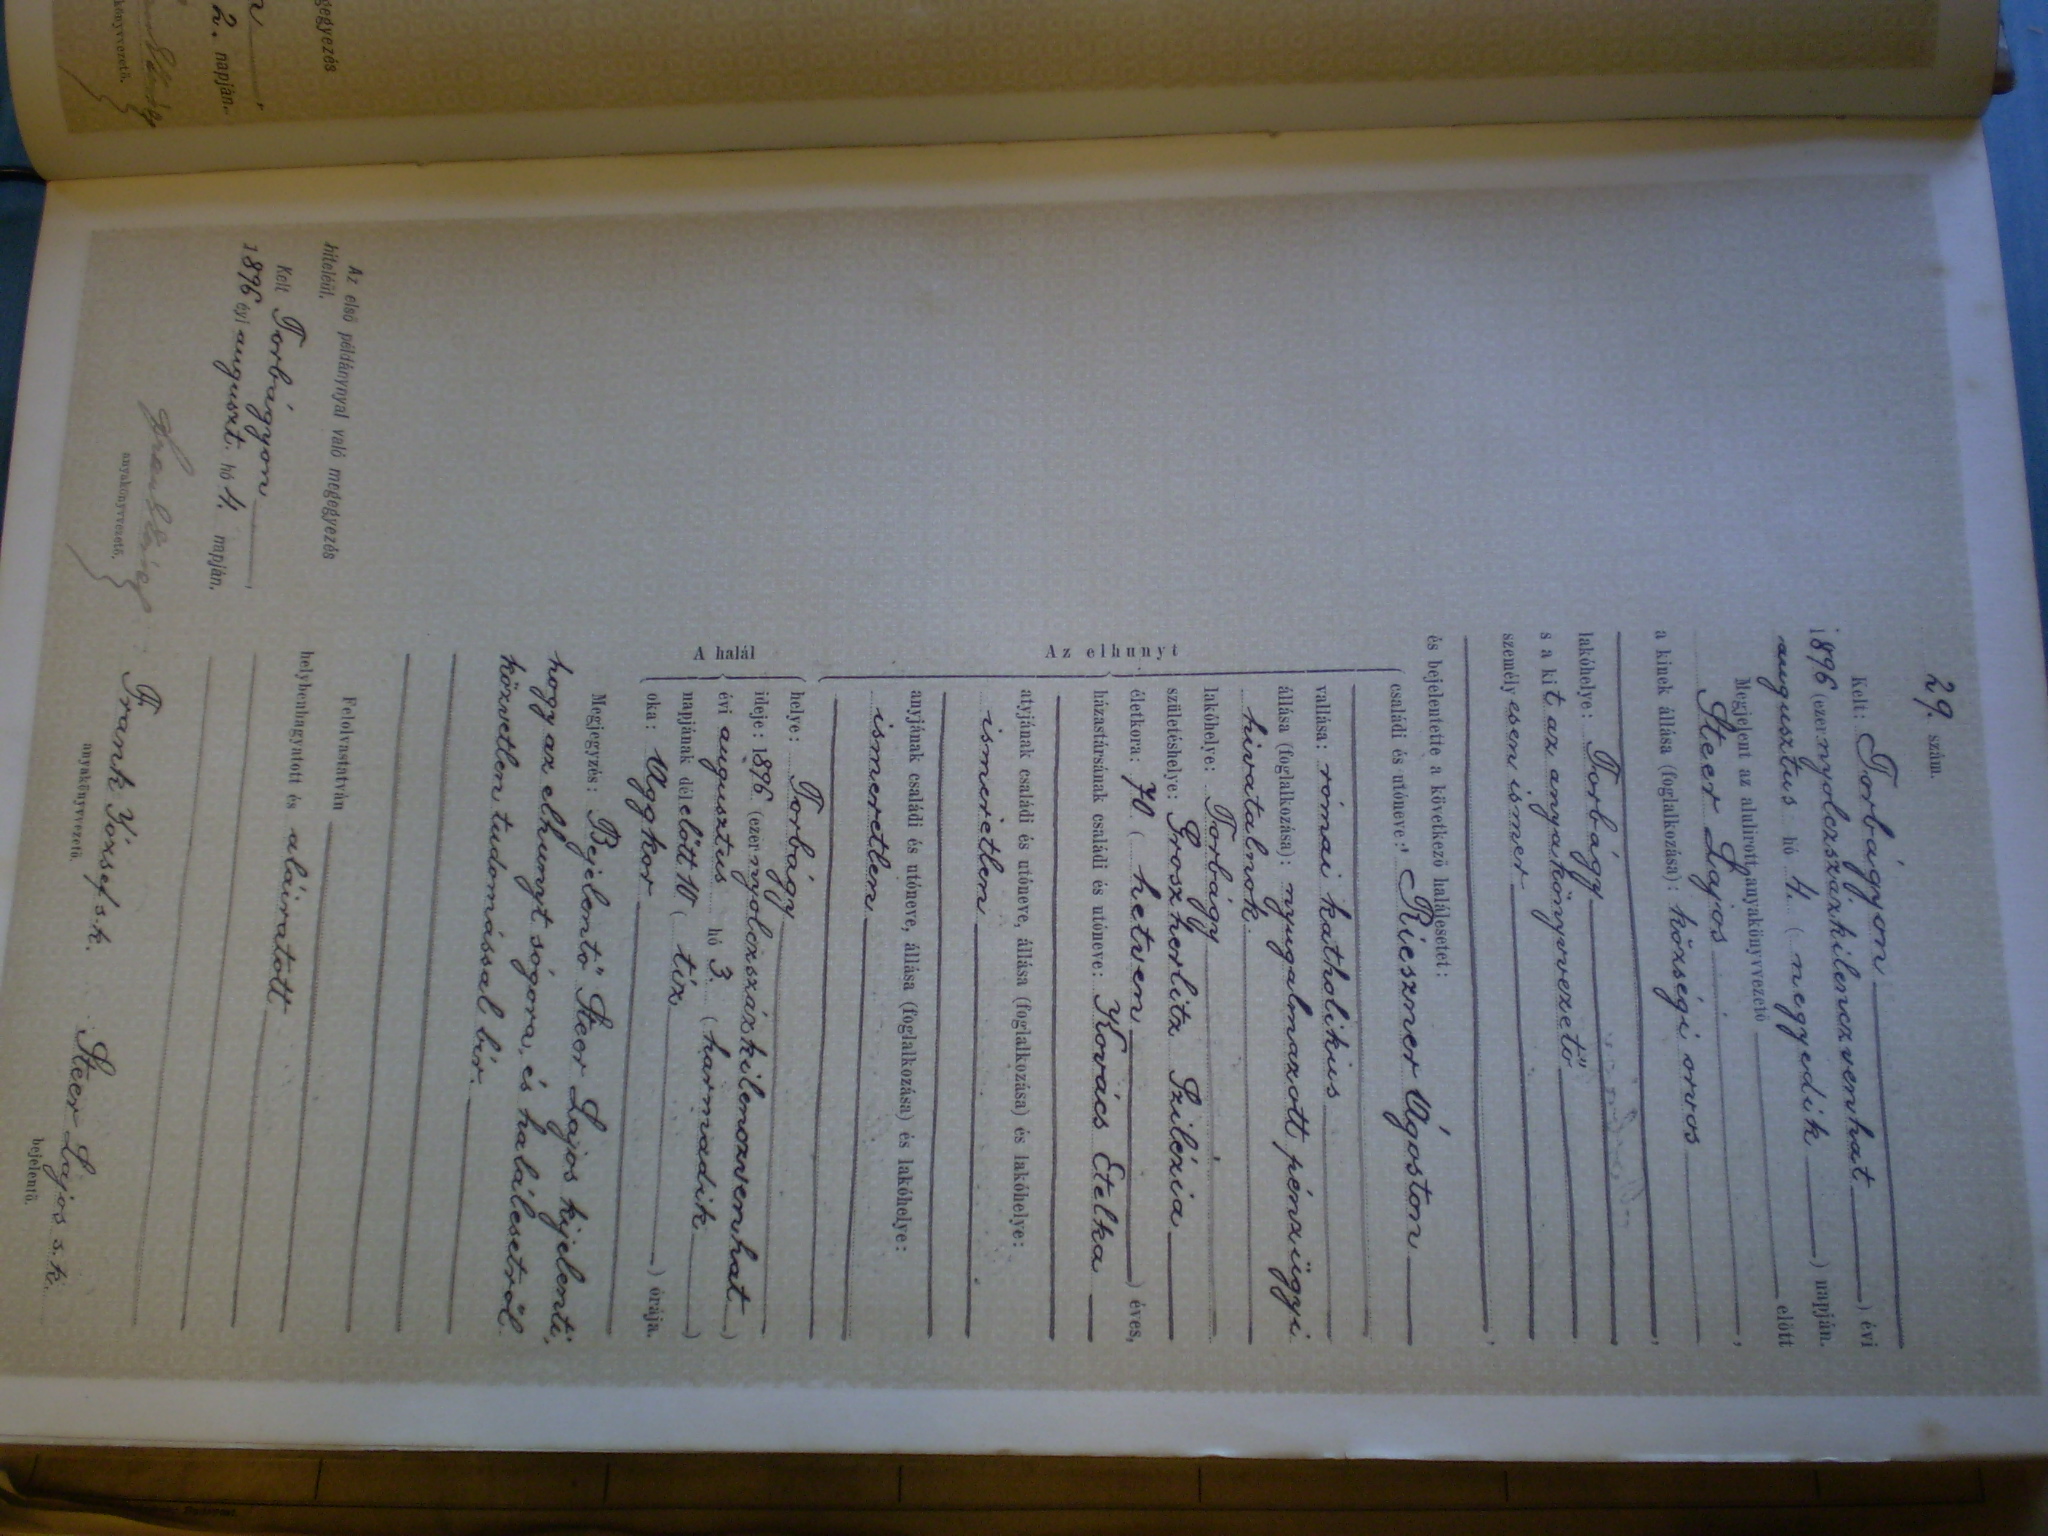 29. szám.
Kelt: Torbágyon
1896 (ezernyolczszázkilenczvenhat) évi
augusztus hó 4. (negyedik) napján.
Megjelent az alulirott anyakönyvvezető előtt
Steer Lajos,
a kinek állása (foglalkozása): községi orvos,
lakóhelye: Torbágy
s a kit az anyakönyvvezető
személyesen ismer,
és bejelentette a következő halálesetet:
Az elhunyt
családi és utóneve: Rieszner Ágoston
vallása: római katholikus
állása (foglalkozása): nyugalmazott pénzügyi
hivatalnok
lakóhelye: Torbágy
születéshelye: Groszherlitz Szilézia
életkora: 70 (hetven) éves,
házastársának családi és utóneve: Kovács Etelka
atyjának családi és utóneve, állása (foglalkozása) és lakóhelye:
ismeretlen
anyjának családi és utóneve, állása (foglalkozása) és lakóhelye:
ismeretlen
A halál
helye: Torbágy
ideje: 1896 (ezernyolczszázkilenczvenhat)
évi augusztus hó 3. (harmadik)
napjának délelőtt 10 (tíz) órája.
oka: Aggkor
Megjegyzés: Bejelentő Steer Lajos kijelenti,
hogy az elhunyt sógora, és halálesetről
közvetlen tudomással bír.
Felolvastatván
helybenhagyatott és aláiratott
Frank József s.k. Steer Lajos s.k.
anyakönyvvezető. bejelentő.
Az első példánynyal való megegyezés
hiteléül.
Kelt Torbágyon
1896 évi auguszt. hó 4. napján.
anyakönyvvezető.
gegyezés
2. napján.
könyvvezető.